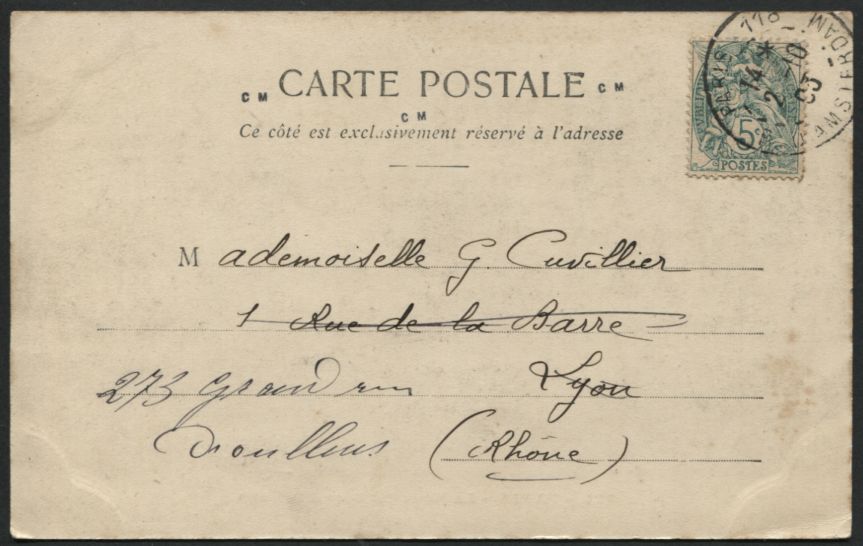 CARTE POSTALE
CM CM
CM
Ce côté est exclusivement réservé à l'adresse
5
POSTES
PARIS 118
AMSTERDAM
Mademoiselle G. Cuvillier
1 Rue de la Barre
273 Grand rue Lyon
Oroullens (Rhône)